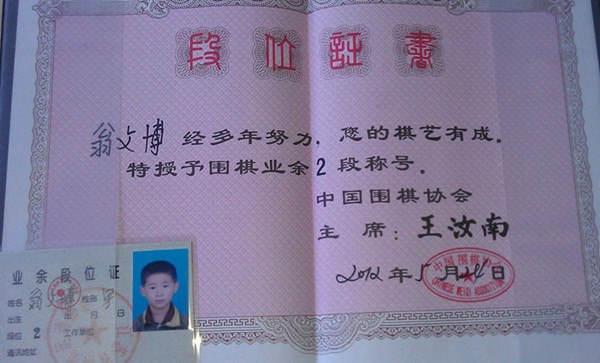 段位証書
翁文博 经多年努力，您的棋艺有成。
特授予围棋业余2段称号。
中国围棋协会
主 席：王汝南
2012年5月 日
中国围棋协会
CHINESE WEIQI ASSOCIATION
业余段位证
姓名 翁文博 性别 男
出生 年 月 日
段位 2 工作单位
通讯地址